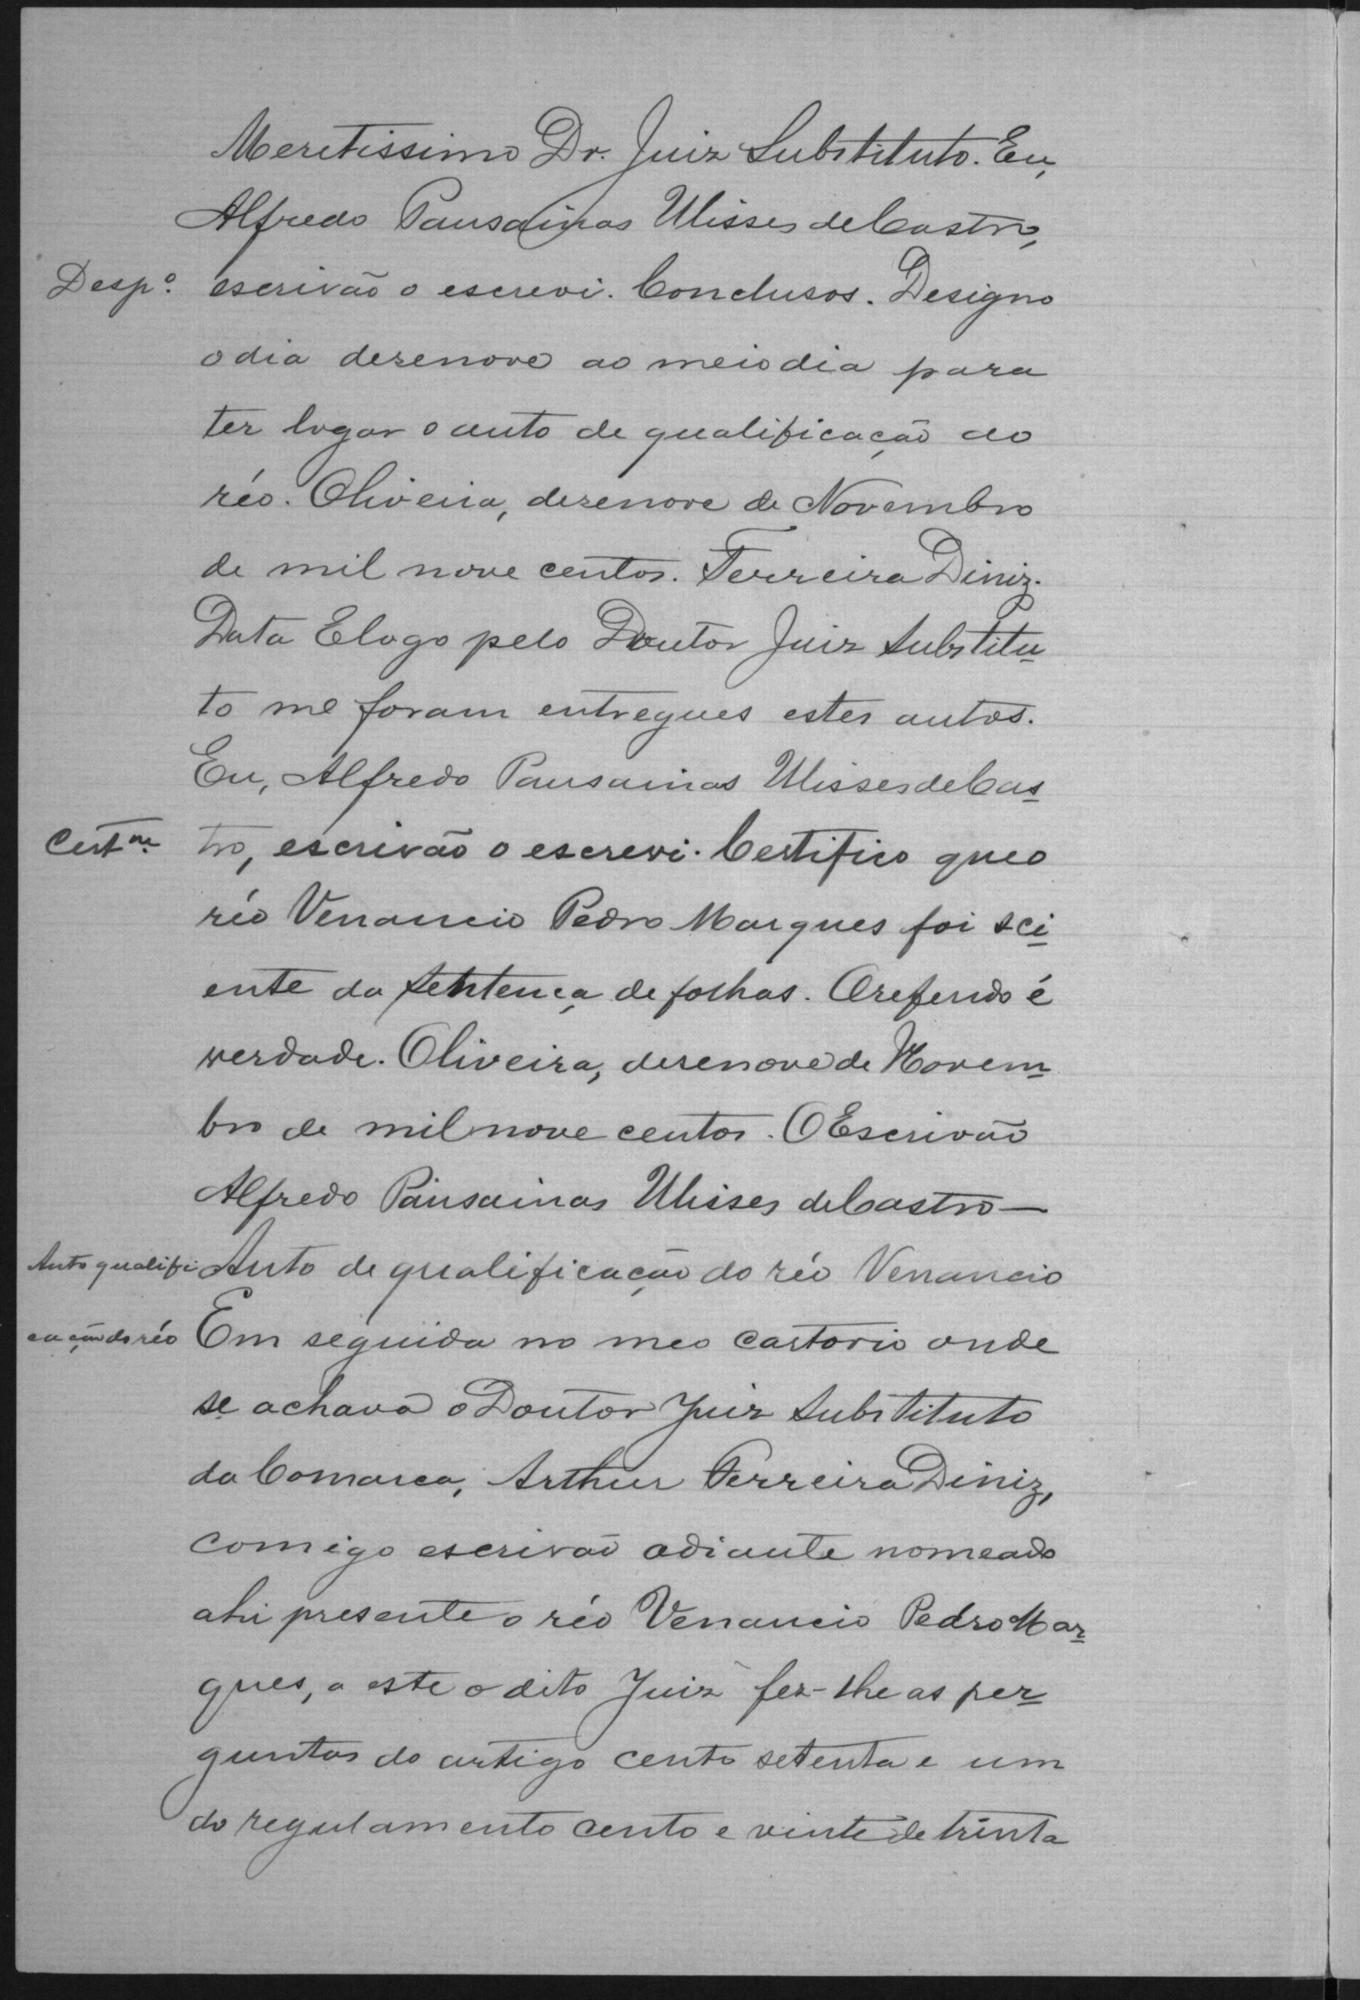 Meretissimo Dr. Juiz Substituto. Eu,
Alfredo Pausainas Ulisses de Castro,
Desp.º escrivão o escrevi. Conclusos. Designo
o dia desenove ao meio dia para
ter logar o auto de qualificação do
réo. Oliveira, desenove de Novembro
de mil nove centos. Ferreira Diniz.
Data E logo pelo Doutor Juiz Substitu-
to me foram entregues estes autos.
Eu, Alfredo Pausainas Ulisses de Cas-
Cert.m tro, escrivão o escrevi. Certifico que o
réo Venancio Pedro Marques foi sci-
ente da sentença de folhas. O referido é
verdade. Oliveira, desenove de Novem-
bro de mil nove centos. O Escrivão
Alfredo Pausainas Ulisses de Castro —
Auto qualifi- Auto de qualificação do réo Venancio
cação do réo Em seguida no meo cartorio onde
se achava o Doutor Juiz Substituto
da Comarca, Arthur Ferreira Diniz,
comigo escrivão adiante nomeado
ahi presente o réo Venancio Pedro Mar-
ques, a este o dito Juiz fez-lhe as per-
guntas do artigo cento setenta e um
do regulamento cento e vinte de trinta